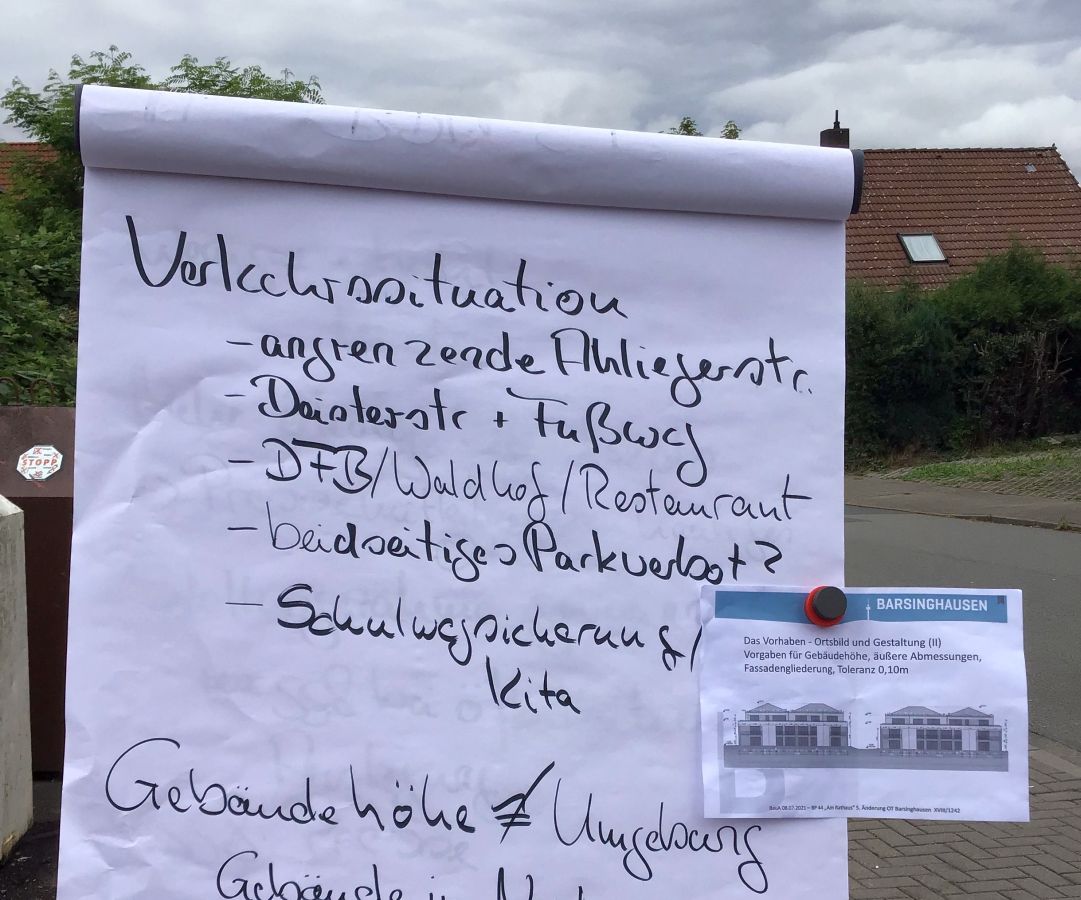 Verkehrssituation
- angrenzende Anliegerstr.
- Deisterstr + Fußweg
- DFB/Waldhof/Restaurant
- beidseitiges Parkverbot?
- Schulwegsicherung/
Kita
Gebäudehöhe ≠ Umgebung
Gebäude in
STOPP
BARSINGHAUSEN
Das Vorhaben - Ortsbild und Gestaltung (II)
Vorgaben für Gebäudehöhe, äußere Abmessungen,
Fassadengliederung, Toleranz 0,10m
BauA 08.07.2021 – BP 44 „Am Rathaus" 5. Änderung OT Barsinghausen XVIII/1242